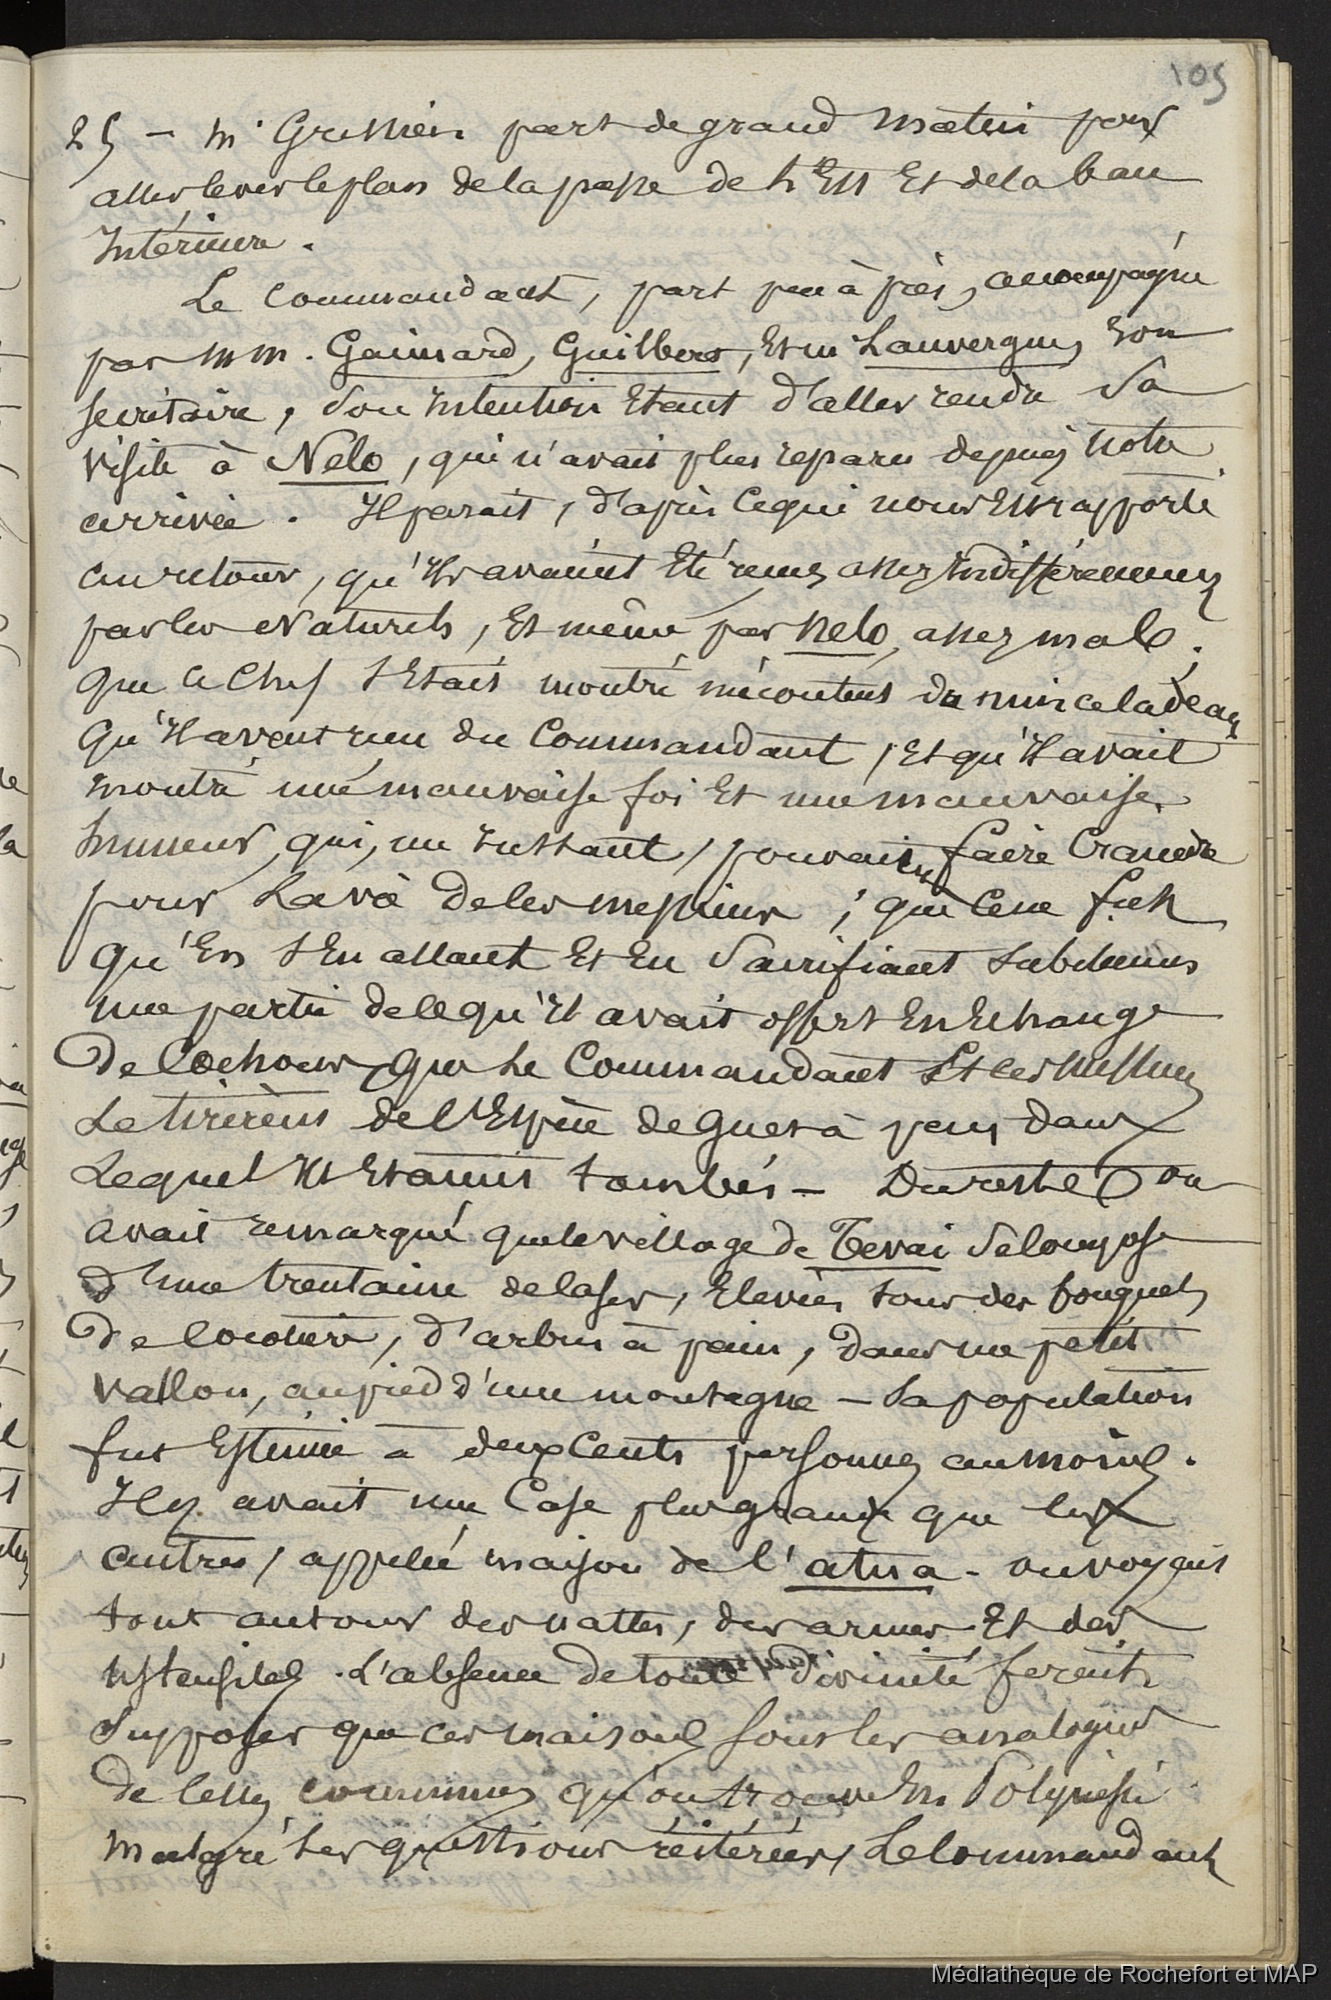 105
25 — Mr Gressien part de grand matin pour
aller lever le plan de la passe de l'Est et de la baie
Intérieure.
Le Commandant, part peu à près, accompagné
par MM. Gaimard, Guilbert, et m Lauvergne, son
secrétaire, son intention étant d'aller rendre sa
visite à Nelo, qui n'avait plus reparu depuis notre
arrivée. Il parait, d'après ce qui nous est rapporté
au retour, qu'ils avaient été reçus assez indifféremment
par les Naturels, et même par Nelo, assez mal.
que ce chef s'était montré mécontent du mince cadeau
qu'il avait reçu du Commandant, et qu'il avait
montré une mauvaise foi et une mauvaise
humeur, qui, un instant, pouvait faire craindre
pour la vie de ces messieurs; que ce ne fut
qu'en s'en allant et en sacrifiant
une partie de ce qu'il avait offert en Echange
de Cochons, que le Commandant et ces messieurs
se tirèrent de l'espèce de guet à pens dans
Lequel ils étaient tombés — Du reste on
avait remarqué que le village de Tevai se compose
d'une trentaine de cases, Elevées sous des bouquets
de cocotiers, d'arbres à pain, dans un petit
vallon, au pied d'une montagne — Sa population
fut Estimée à deux cents personnes au moins.
Il y avait une Case plus grande que les
autres, appelée maison de l'atua. on voyait
tout autour des nattes, des armes et des
ustensiles. L'absence de toute divinité ferait
supposer que ces maisons sont les analogues
de celles communes qu'on trouve En Polynésie
Malgré Les questions réitérées, Le Commandant
Médiathèque de Rochefort et MAP